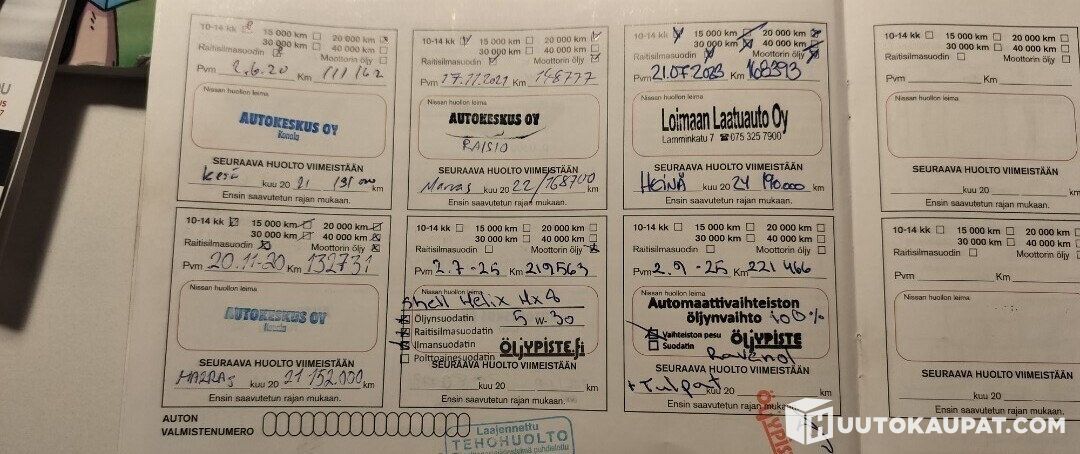 10-14 kk 15 000 km 20 000 km
30 000 km 40 000 km
Raitisilmasuodin Moottorin öljy
Pvm 2.6.20 Km 111162
Nissan huollon leima
AUTOKESKUS OY
Konala
SEURAAVA HUOLTO VIIMEISTÄÄN
Kesä kuu 20 21 131 000 km
Ensin saavutetun rajan mukaan.
10-14 kk 15 000 km 20 000 km
30 000 km 40 000 km
Raitisilmasuodin Moottorin öljy
Pvm 17.11.2021 Km 148777
Nissan huollon leima
AUTOKESKUS OY
RAISIO
SEURAAVA HUOLTO VIIMEISTÄÄN
Marras kuu 20 22/168700 km
Ensin saavutetun rajan mukaan.
10-14 kk 15 000 km 20 000 km
30 000 km 40 000 km
Raitisilmasuodin Moottorin öljy
Pvm 21.07.2023 Km 168393
Nissan huollon leima
Loimaan Laatuauto Oy
Lamminkatu 7 ☎075 325 7900
SEURAAVA HUOLTO VIIMEISTÄÄN
HEINÄ kuu 20 24 190.000 km
Ensin saavutetun rajan mukaan.
10-14 kk 15 000 km
30 000 km
Raitisilmasuodin
Pvm Km
Nissan huollon leima
SEURAAVA HUOLTO VIIMEISTÄÄN
kuu 20
Ensin saavutetun rajan mukaan.
10-14 kk 15 000 km 20 000 km
30 000 km 40 000 km
Raitisilmasuodin Moottorin öljy
Pvm 20.11.20 Km 132731
Nissan huollon leima
AUTOKESKUS OY
Konala
SEURAAVA HUOLTO VIIMEISTÄÄN
MARRAS kuu 20 21 152.000 km
Ensin saavutetun rajan mukaan.
10-14 kk 15 000 km 20 000 km
30 000 km 40 000 km
Raitisilmasuodin Moottorin öljy
Pvm 2.7-25 Km 219563
Nissan huollon leima
Shell Helix Hx8
Öljynsuodatin 5w-30
Raitisilmasuodatin
Ilmansuodatin
Polttoainesuodatin
ÖLJYPISTE.fi
SEURAAVA HUOLTO VIIMEISTÄÄN
kuu 20 km
Ensin saavutetun rajan mukaan.
10-14 kk 15 000 km 20 000 km
30 000 km 40 000 km
Raitisilmasuodin Moottorin öljy
Pvm 2.9-25 Km 221466
Nissan huollon leima
Automaattivaihteiston
öljynvaihto 100%
Vaihteiston pesu
Suodatin
ÖLJYPISTE
Ravenol
SEURAAVA HUOLTO VIIMEISTÄÄN
+Tulpat kuu 20 km
Ensin saavutetun rajan mukaan.
10-14 kk 15 000 km
30 000 km
Raitisilmasuodin
Pvm Km
Nissan huollon leima
SEURAAVA HUOLTO VIIMEISTÄÄN
AUTON
VALMISTENUMERO
Laajennettu
TEHOHUOLTO
UUTOKAUPAT.COM